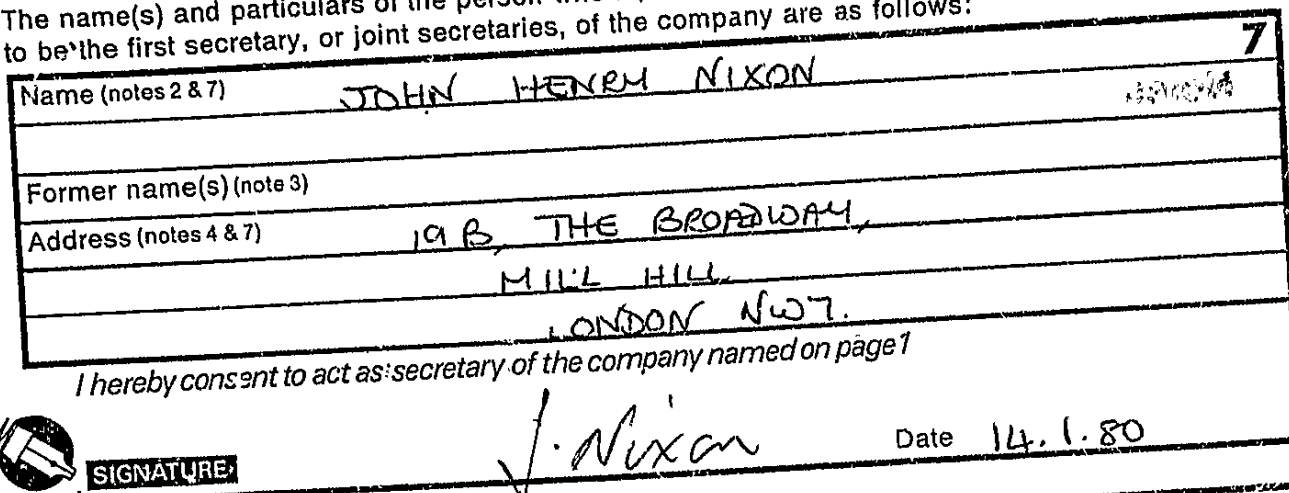 The name(s) and particulars of the person
to be the first secretary, or joint secretaries, of the company are as follows:
7
Name (notes 2 & 7) JOHN HENRY NIXON
Former name(s) (note 3)
Address (notes 4 & 7) 19B, THE BROADWAY,
MILL HILL
LONDON NW7.
I hereby consent to act as secretary of the company named on page 1
SIGNATURE J. Nixon Date 14.1.80